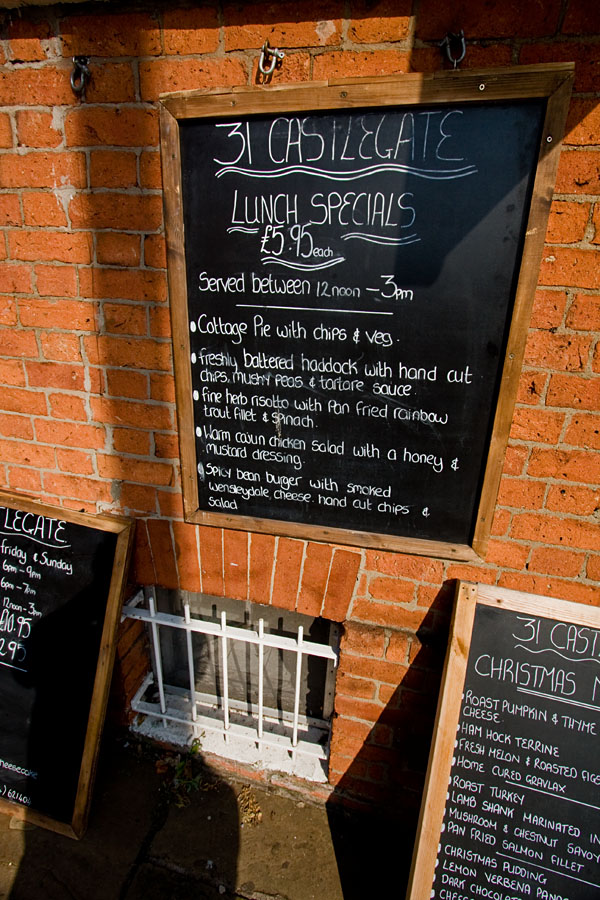 31 CASTLEGATE
LUNCH SPECIALS
£5.95 each
Served between 12noon - 3pm
• Cottage Pie with chips & veg.
• freshly battered haddock with hand cut
chips, mushy peas & tartare sauce.
• fine herb risotto with Pan fried rainbow
trout fillet & spinach.
• Warm cajun chicken salad with a honey &
mustard dressing.
• Spicy bean burger with smoked
wensleydale, cheese. hand cut chips &
salad
LEGATE
friday & Sunday
6pm - 9pm
6pm - 7pm
12noon - 3pm
£10.95
2.95
31 CAST
CHRISTMAS M
• ROAST PUMPKIN & THYME
CHEESE.
• HAM HOCK TERRINE
• FRESH MELON & ROASTED FIGS
• HOME CURED GRAVLAX
• ROAST TURKEY
• LAMB SHANK MARINATED IN
• MUSHROOM & CHESTNUT SAVOY
• PAN FRIED SALMON FILLET
• CHRISTMAS PUDDING
• LEMON VERBENA PANA
• DARK CHOCOLATE
• CHEESE